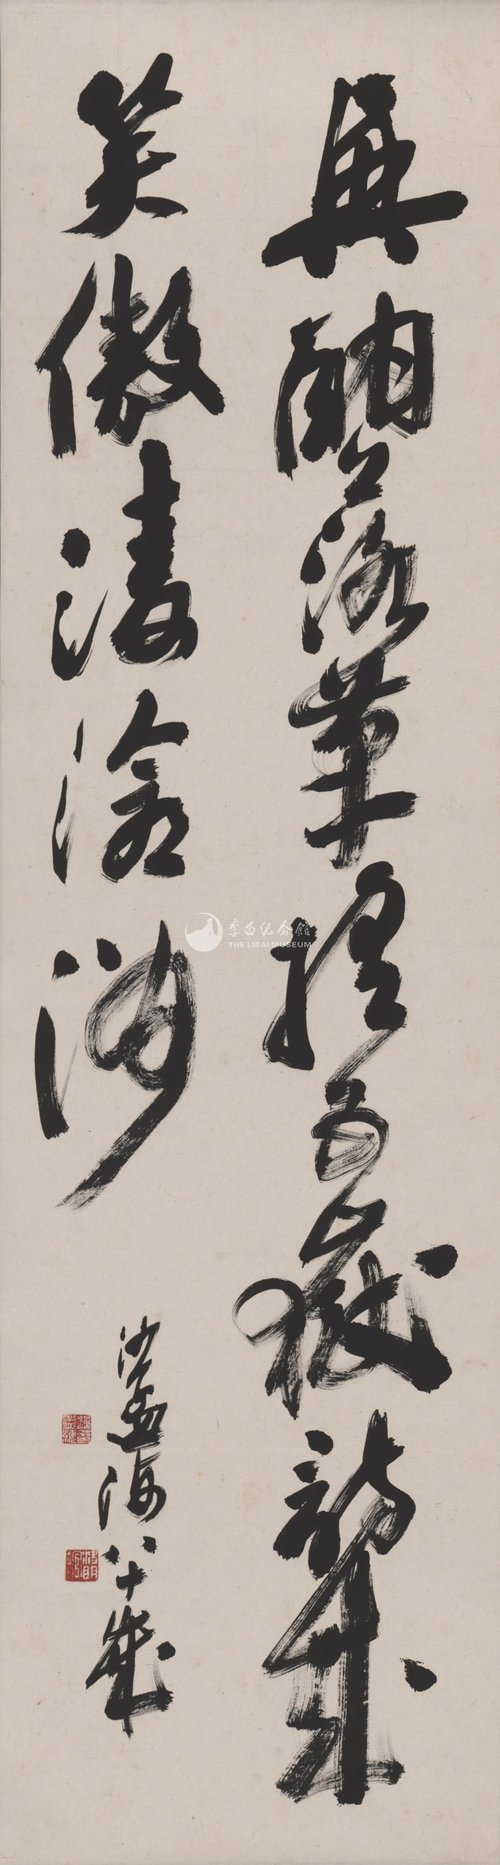 興酣落筆摇五嶽詩成
笑傲凌滄洲
沙孟海八十歲
李白纪念館
THE LIBAI MUSEUM